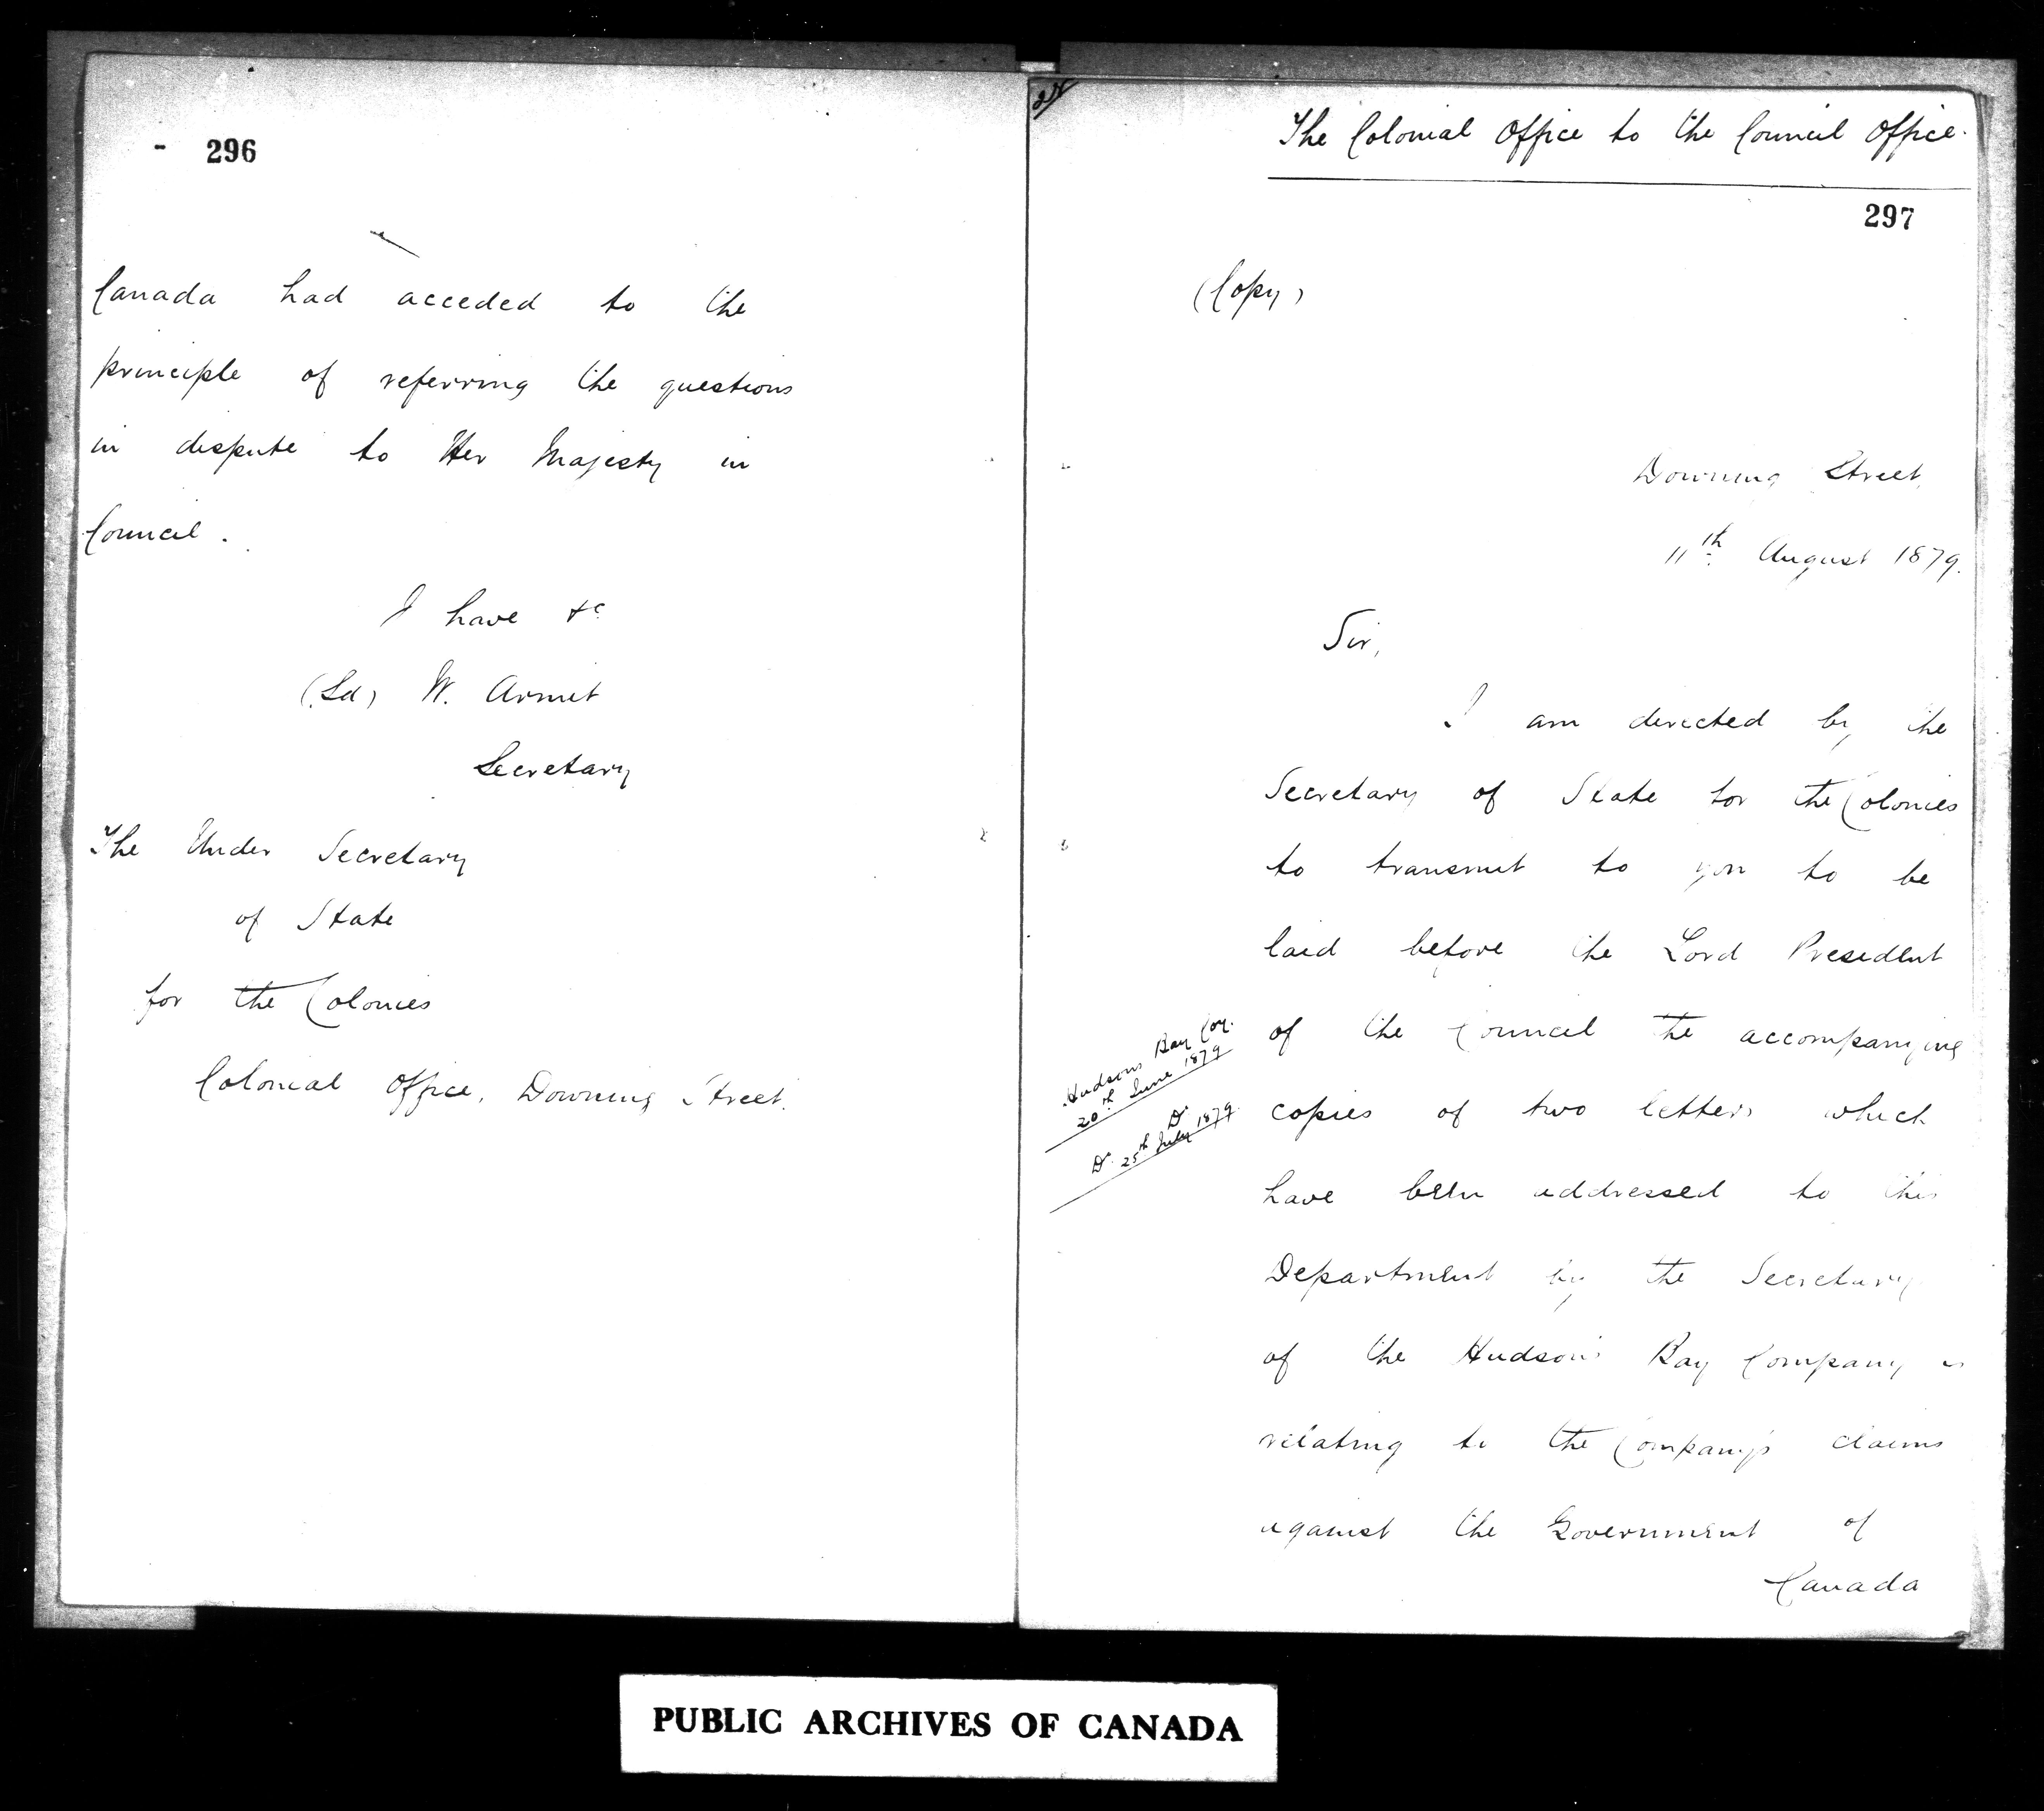 296
Canada had acceded to the
principle of referring the questions
in dispute to Her Majesty in
Council.
I have &c
(Sd) W. Armit
Secretary
The Under Secretary
of State
for the Colonies
Colonial Office, Downing Street.
The Colonial Office to the Council Office.
297
(Copy)
Downing Street,
11th August 1879.
Sir,
I am directed by the
Secretary of State for the Colonies
to transmit to you to be
laid before the Lord President
of the Council the accompanying
Hudsons Bay Coy.
20th June 1879
Do Do
25th July 1879.
copies of two letters which
have been addressed to this
Department by the Secretary
of the Hudson's Bay Company
relating to the Company's claims
against the Government of
Canada
PUBLIC ARCHIVES OF CANADA